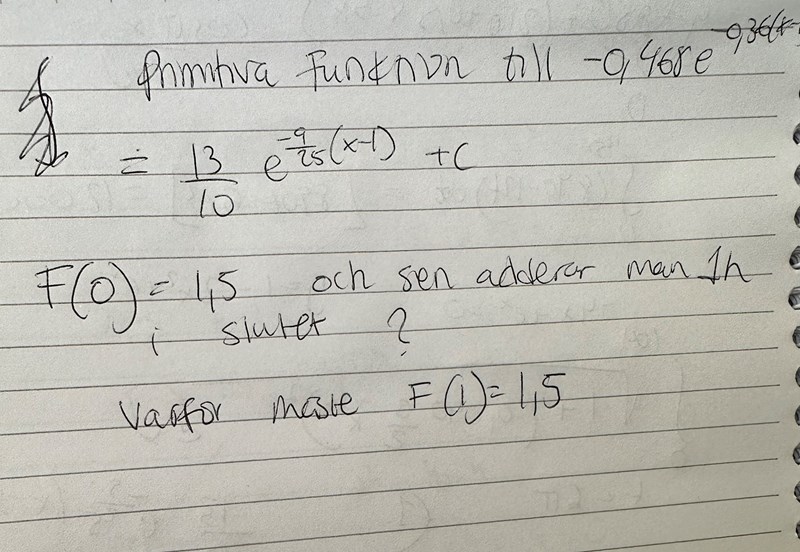 Primitiva Funktion till -0,468e^-0,36(x-
= 13/10 e^-9/25(x-1) +C
F(0) = 1,5 och sen adderar man 1h
i slutet ?
Varför måste F(1)=1,5